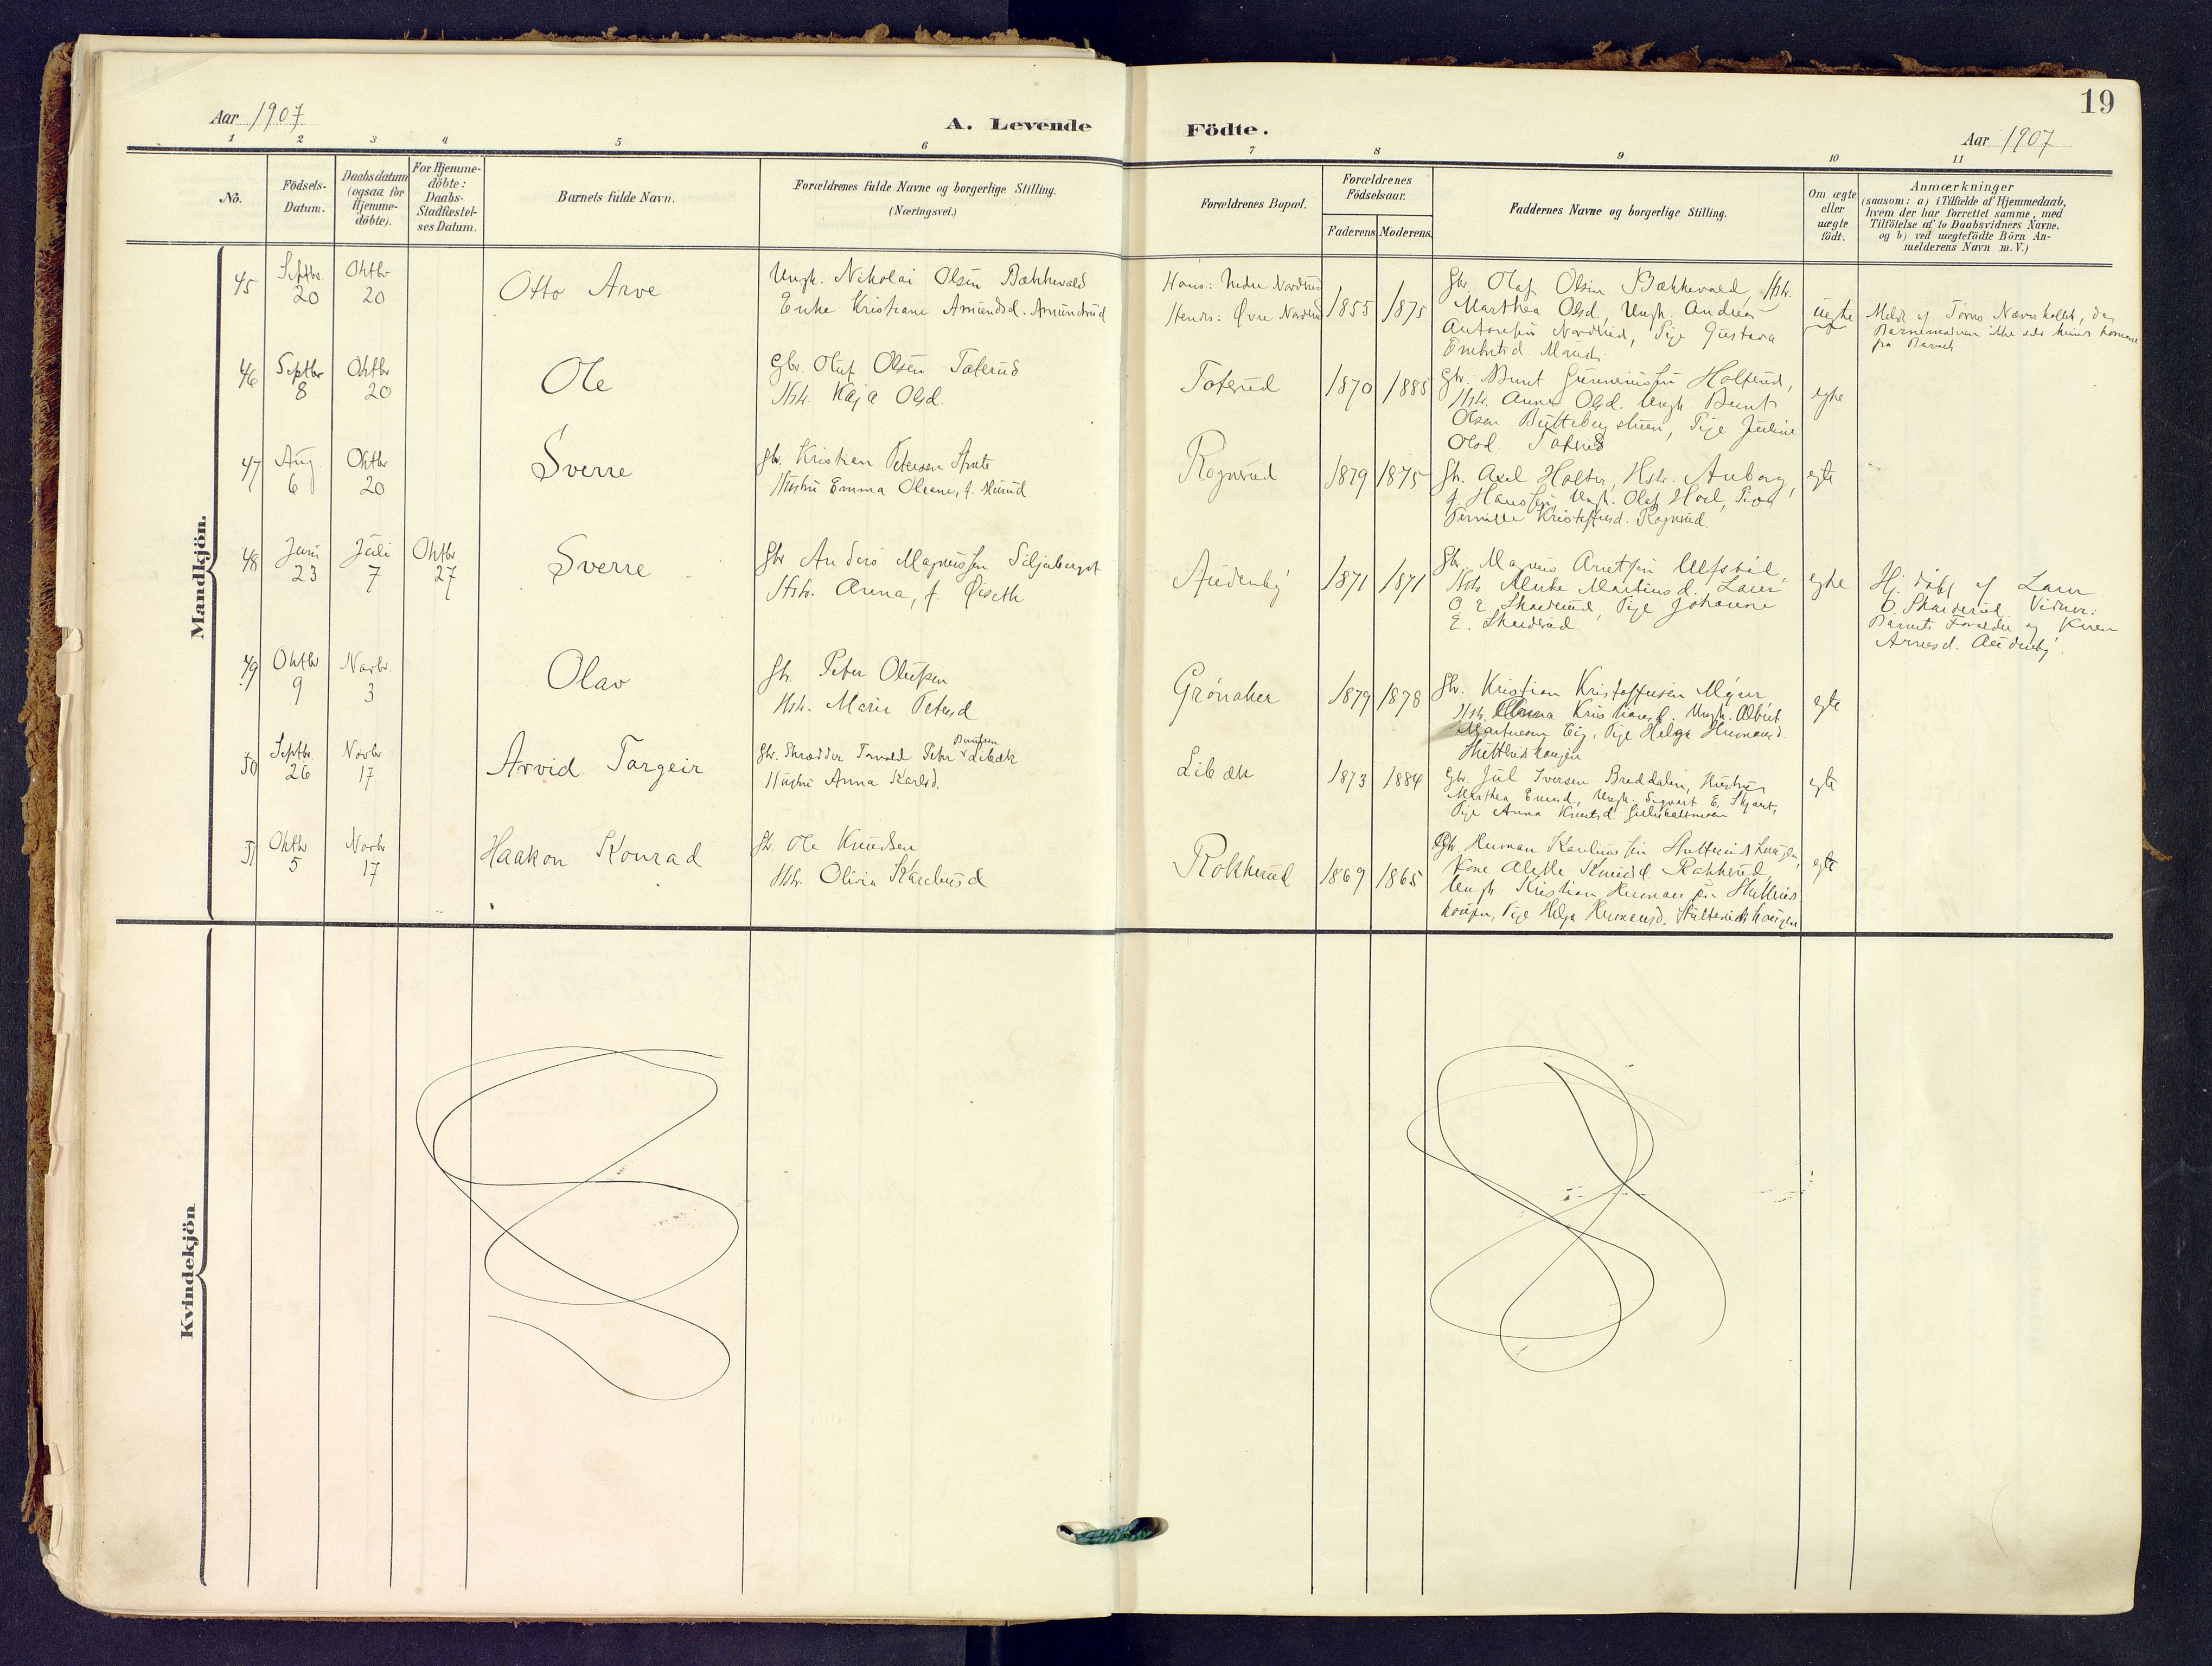 19
Aar 1907
A. Levende Födte.
Aar 1907
1 2 3 4 5 6 7 8 9 10 11
No.
Födsels-
Datum.
Daabsdatum
(ogsaa for
Hjemme-
döbte).
For Hjemme-
döbte:
Daabs-
Stadfæstel-
ses Datum.
Barnets fulde Navn.
Forældrenes fulde Navne og borgerlige Stilling.
(Næringsvei.)
Forældrenes Bopæl.
Forældrenes
Födselsaar.
Faderens Moderens
Faddernes Navne og borgerlige Stilling.
Om ægte
eller
uægte
födt.
Anmærkninger
(saasom: a) i Tilfælde af Hjemmedaab,
hvem der har forrettet samme, med
Tilföielse af to Daabsvidners Navne,
og b) ved uægtefödte Börn An-
melderens Navn m.V.)
Mandkjön.
45
Septbr.
20
Oktbr
20
Otto Arve
Ungk. Nikolai Olsen Bækkevold
Enke Kristiane Amundsd. Amundrud
Hans: Nedre Nordrud
Hendes: Øvre Nordrud
1855
1875
Gbr. Olaf Olsen Bækkevold, Hstr.
Marthea Olsd., Ungk. Andreas
Antonsen Nordrud, Pige Gustava
uegte
46
Septbr
8
Oktbr
20
Ole
Gbr. Oluf Olsen Toterud
Hstr. Kaja Olsd.
Toterud
1870
1885
Gbr. Bernt Gunneriussen Holterud,
Hstr. Anne Olsd. Ungk. Bernt
Olsen Butterbergstuen, Pige Juline
Olsd. Toterud
egte
47
Aug.
6
Oktbr
20
Sverre
Gbr. Kristian Petersen
Hustru Emma Oleane, f.
Rognerud
1879
1875
Gbr. Axel Holter, Hstr. Anborg,
f. Hanssen, Ungk. Olaf Hoel, Pige
Pernille Kristoffersd. Rognerud
egte
48
Juni
23
Juli
7
Oktbr
27
Sverre
Gbr Anders Magnussen Siljeberget
Hstr. Anna, f. Øiseth
Audenby
1871
1871
Gbr. Magnus Arnetsen Ulfsbøl,
Hstr. Martinsd. Lærer
O. E. Skarderud, Pige Johanne
E. Skarderud.
egte
Hj. døbt af Lærer
O. Skarderud. Vidner:
Barnets Forældre og Karen
Arnesd. Audenby.
49
Oktbr
9
Novbr.
3
Olav
Gbr. Peter Olufsen
Hstr. Marie Petersd
Grønaker
1879
1878
Gbr. Kristian Kristoffersen
Hstr. Anna Kristiansd. Ungk. Albert
Martinsen Eig, Pige Helga Hermansd.
egte
50
Septbr.
26
Novbr
17
Arvid Torgeir
Berntsen
Gbr. Skrædder Torvald Peter Libæk
Hustru Anna Karlsd.
Libæk
1873
1884
Gbr. Jul Iversen Bruddalen, Hustru
Marthea Evensd., Ungk. Sigvart E.
Pige Anna Knutsd.
egte
51
Oktbr
5
Novbr
17
Haakon Konrad
Gbr. Ole Knudsen
Hstr. Olivia Kareliusd
Rokkerud
1869
1865
Gbr. Herman Kareliussen
Kone Alette Knudsd. Rokkerud,
Ungk. Kristian Hermansen
Pige Helga Hermansd.
egte
Kvindekjön